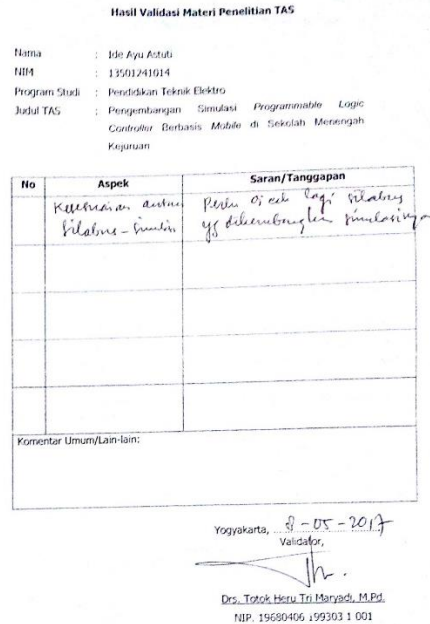 Hasil Validasi Materi Penelitian TAS
Nama : Ide Ayu Astuti
NIM : 13501241014
Program Studi : Pendidikan Teknik Elektro
Judul TAS : Pengembangan Simulasi Programmable Logic
Controller Berbasis Mobile di Sekolah Menengah
Kejuruan
No Aspek Saran/Tanggapan
Kesesuaian antara Perlu di cek lagi silabus
Silabus - Simulasi yg dikembangkan simulasinya
Komentar Umum/Lain-lain:
Yogyakarta, 8-05-2017
Validator,
Drs. Totok Heru Tri Maryadi, M.Pd.
NIP. 19680406 199303 1 001